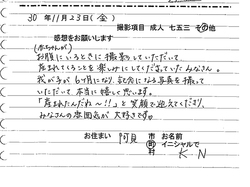 30年11月23日(金)
撮影項目 成人 七五三 その他
感想をお願いします
(赤ちゃんが)
お腹にいるときに撮影していただいて、
産まれてくることを楽しみにしてくださっていたみなさん。
我が子が6ヶ月になり、記念になる写真を撮って
いただいて本当に嬉しく思います。
「産まれたんだね〜!!」と笑顔で迎えてくださり、
みなさんの雰囲気が大好きです。
お住まい 阿見 市 町 村 お名前 イニシャルで K N